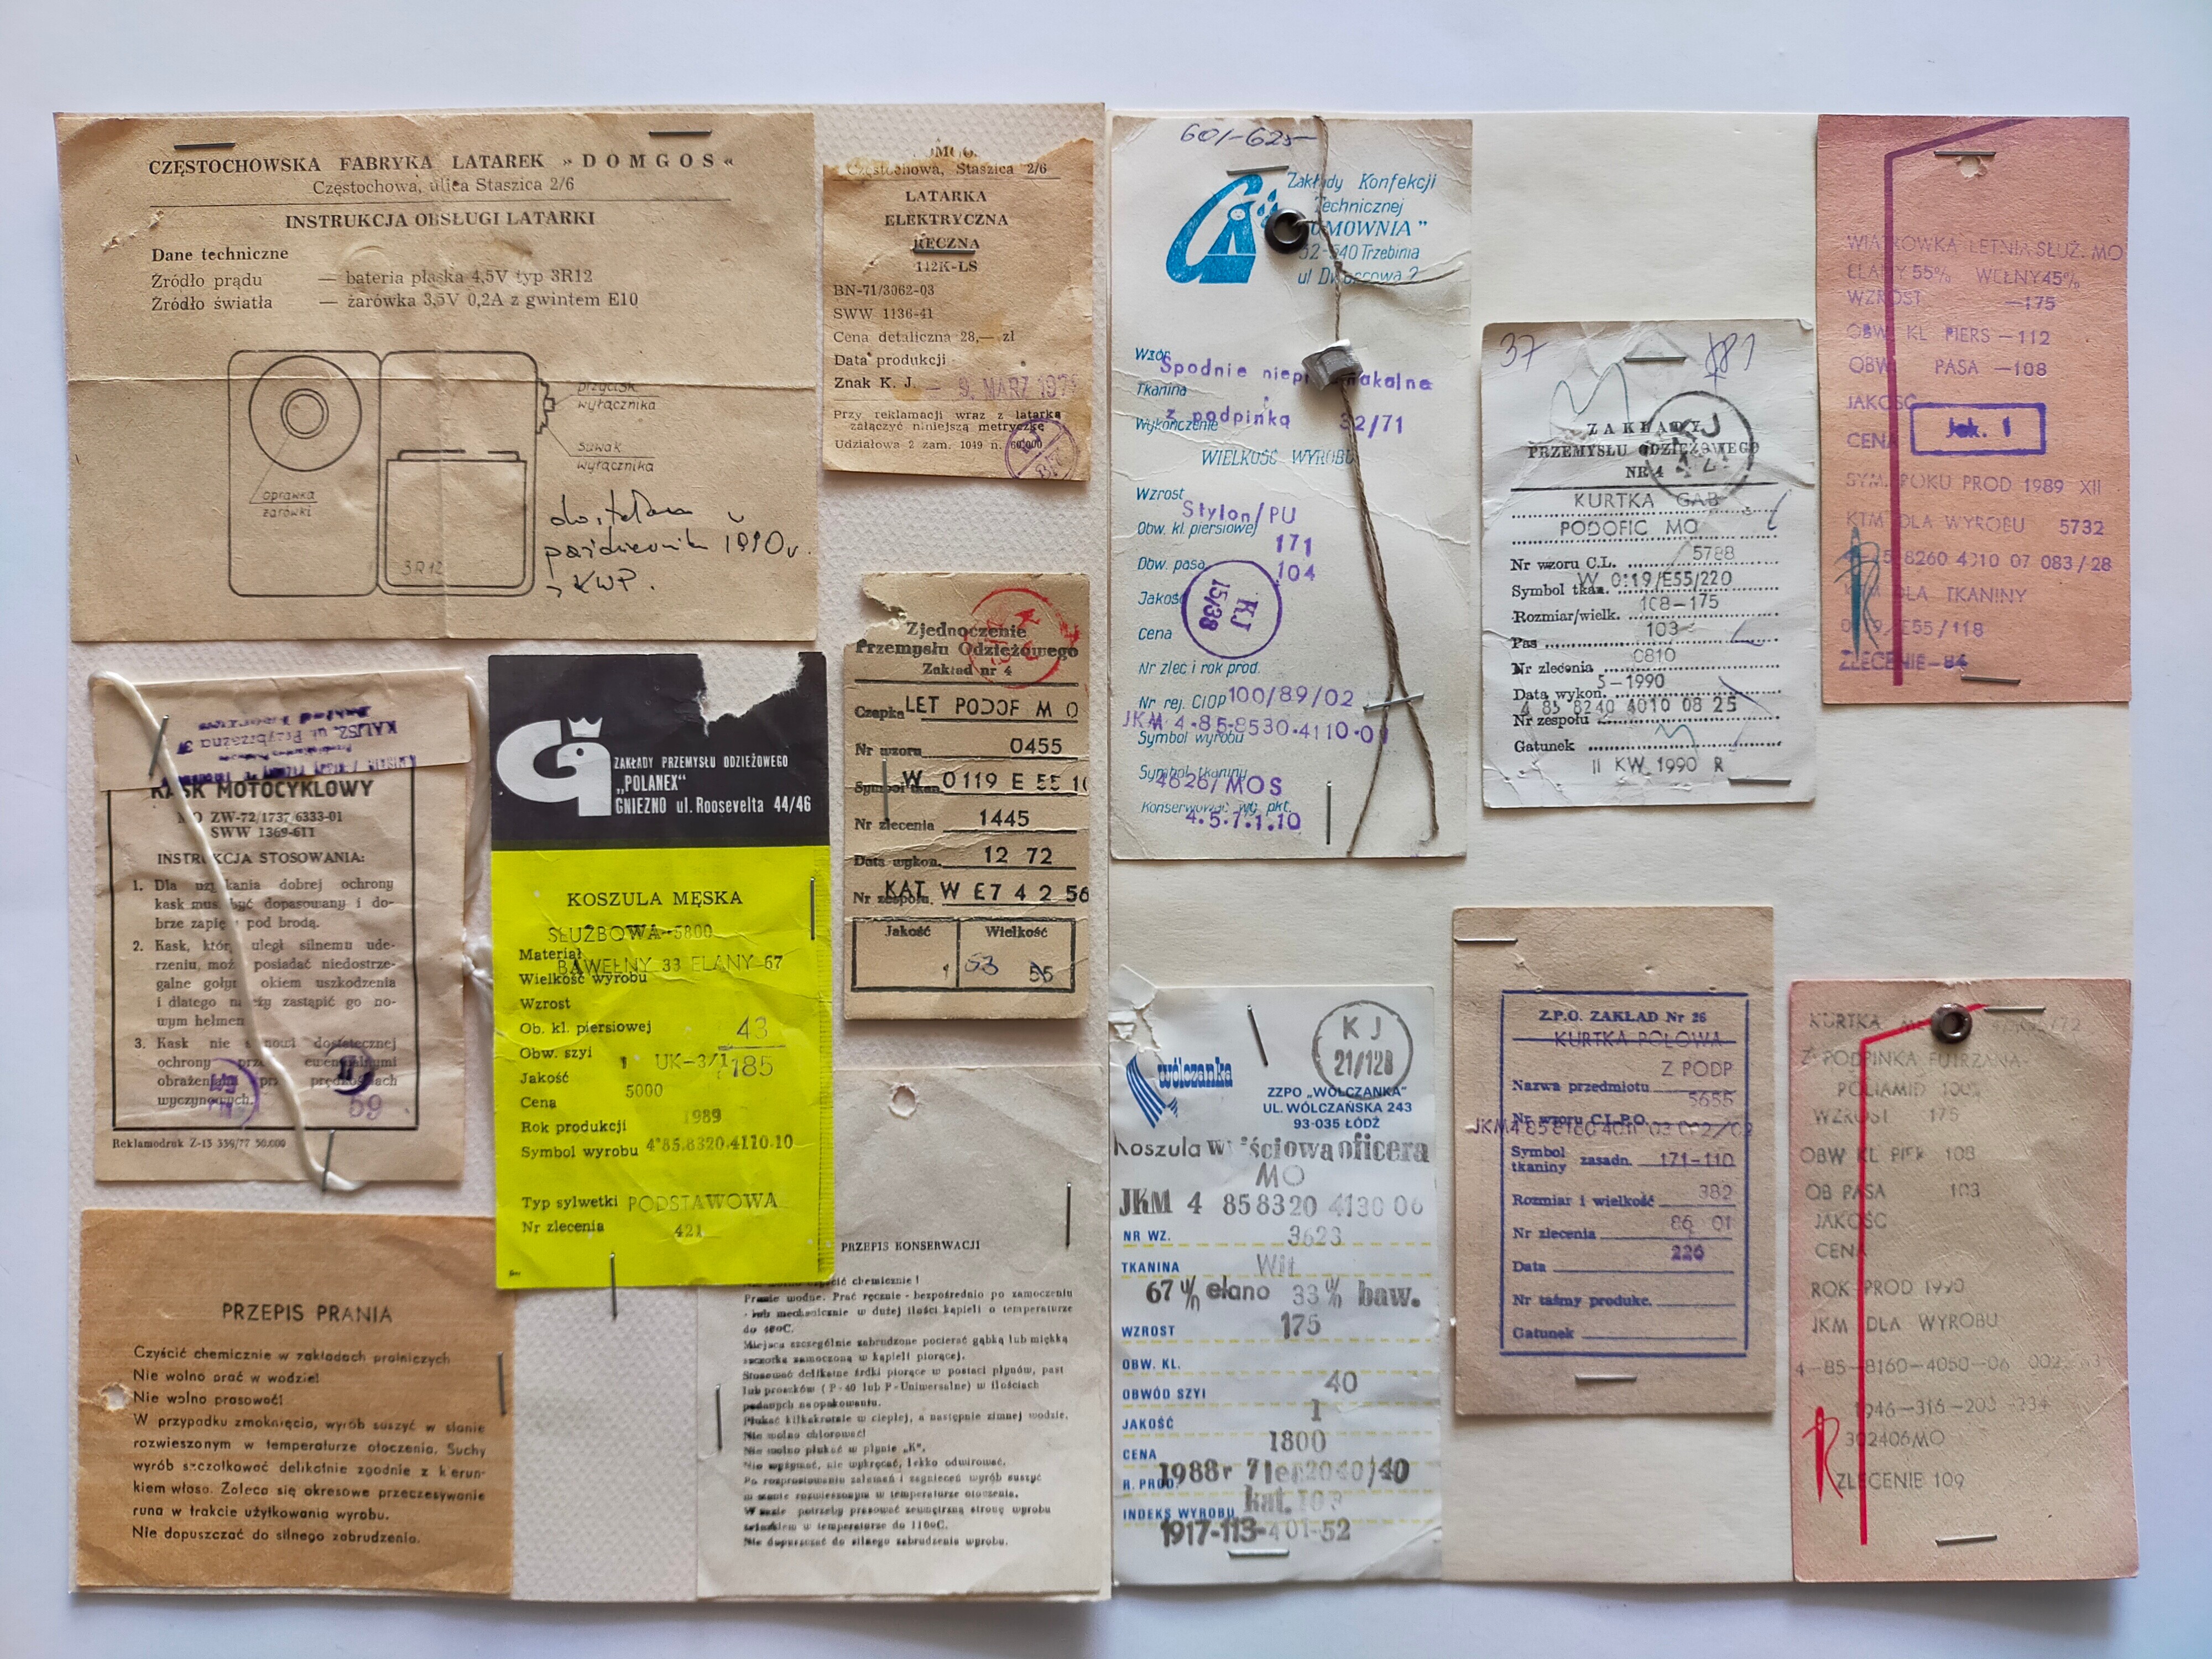 CZĘSTOCHOWSKA FABRYKA LATAREK »DOMGOS«
Częstochowa, ulica Staszica 2/6
INSTRUKCJA OBSŁUGI LATARKI
Dane techniczne
Źródło prądu — bateria płaska 4,5V typ 3R12
Źródło światła — żarówka 3,5V 0,2A z gwintem E10
przycisk
wyłącznika
suwak
wyłącznika
oprawka
żarówki
3R12
październik 1990r.
z KWP.
Częstochowa, Staszica 2/6
LATARKA
ELEKTRYCZNA
RĘCZNA
112K-LS
BN-71/3062-03
SWW 1136-41
Cena detaliczna 28,— zł
Data produkcji
Znak K. J. — 9. MARZ 197
Przy reklamacji wraz z latarką
załączyć niniejszą metryczkę
Udziałowa 2 zam. 1049 n. 60.000
KALISZ, ul. Przybrzeżna 3
KASK MOTOCYKLOWY
ZW-72/1737 6333-01
SWW 1369-611
INSTRUKCJA STOSOWANIA:
1. Dla uzyskania dobrej ochrony
kask musi być dopasowany i do-
brze zapięty pod brodą.
2. Kask, który uległ silnemu ude-
rzeniu, może posiadać niedostrze-
galne gołym okiem uszkodzenia
i dlatego należy zastąpić go no-
wym hełmem
3. Kask nie stanowi dostatecznej
ochrony przed ewentualnymi
obrażeniami przy prędkościach
wyczynowych.
59
Reklamodruk Z-13 339/77 50.000
ZAKŁADY PRZEMYSŁU ODZIEŻOWEGO
„POLANEX"
GNIEZNO ul. Roosevelta 44/46
KOSZULA MĘSKA
SŁUŻBOWA-5800
Materiał
BAWEŁNY 33 ELANY 67
Wielkość wyrobu
Wzrost
Ob. kl. piersiowej 43
Obw. szyi UK-3/1 185
Jakość 1
Cena 5000
Rok produkcji 1989
Symbol wyrobu 4*85.8320.4110.10
Typ sylwetki PODSTAWOWA
Nr zlecenia 421
Zjednoczenie
Przemysłu Odzieżowego
Zakład nr 4
Czapka LET PODOF M O
Nr wzoru 0455
Symbol tkan. W 0119 E 55 10
Nr zlecenia 1445
Data wykon. 12 72
Nr zespołu KAT W E7 4 2 56
Jakość Wielkość
1 53 55
PRZEPIS PRANIA
Czyścić chemicznie w zakładach pralniczych
Nie wolno prać w wodzie!
Nie wolno prasować!
W przypadku zmoknięcia, wyrób suszyć w stanie
rozwieszonym w temperaturze otoczenia. Suchy
wyrób szczotkować delikatnie zgodnie z kierun-
kiem włosa. Zaleca się okresowe przeczesywanie
runa w trakcie użytkowania wyrobu.
Nie dopuszczać do silnego zabrudzenia.
PRZEPIS KONSERWACJI
czyścić chemicznie!
Pranie wodne. Prać ręcznie - bezpośrednio po zamoczeniu
- lub mechanicznie w dużej ilości kąpieli o temperaturze
do 40oC.
Miejsca szczególnie zabrudzone pocierać gąbką lub miękką
szczotką zamoczoną w kąpieli piorącej.
Stosować delikatne środki piorące w postaci płynów, past
lub proszków (P-40 lub P-Uniwersalne) w ilościach
podanych na opakowaniu.
Płukać kilkakrotnie w ciepłej, a następnie zimnej wodzie.
Nie wolno chlorować!
Nie wolno płukać w płynie „K".
Nie wyżymać, nie wykręcać, lekko odwirować.
Po rozprostowaniu załamań i zagnieceń wyrób suszyć
w stanie rozwieszonym w temperaturze otoczenia.
W razie potrzeby prasować zewnętrzną stronę wyrobu
żelazkiem w temperaturze do 110oC.
Nie dopuszczać do silnego zabrudzenia wyrobu.
601-625
Zakłady Konfekcji
Technicznej
32-540 Trzebinia
Wzór
Spodnie
Tkanina
z podpinką 32/71
Wykończenie
WIELKOŚĆ WYROBU
Wzrost
Stylon/PU
Obw. kl. piersiowej 171
Obw. pasa 104
Jakość
KJ
15/38
Cena
Nr zlec i rok prod.
Nr rej. CIOP 100/89/02
JKM 4-85-8530-4110-0
Symbol wyrobu
Symbol tkaniny
4626/MOS
Konserwować wg pkt.
4.5.7.1.10
37
ZAKŁADY
PRZEMYSŁU ODZIEŻOWEGO
NR 4
KURTKA GAB
PODOFIC MO
Nr wzoru C.L. 5788
Symbol tkan. W 0119/E55/220
Rozmiar/wielk. 108-175
Pas 103
Nr zlecenia 0810
Data wykon. 5-1990
4 85 8240 4010 08 25
Nr zespołu
Gatunek
II KW 1990 R
WIATROWKA LETNIA SŁUŻ. MO
ELANY 55% WEŁNY 45%
WZROST —175
OBW KL PIERS —112
OBW PASA —108
JAKOŚC
Jak. 1
CENA
SYM. ROKU PROD 1989 XII
KTM DLA WYROBU 5732
8260 4010 07 083/28
DLA TKANINY
/E55/118
ZLECENIE-84
KJ
21/128
wólczanka
ZZPO „WÓLCZANKA"
UL. WÓLCZAŃSKA 243
93-035 ŁÓDŹ
Koszula wyjściowa oficera
MO
JKM 4 858320 4130 06
NR WZ. 3623
TKANINA
67% elano 33% baw.
WZROST 175
OBW. KL.
OBWÓD SZYI 40
JAKOŚĆ 1
CENA 1800
R. PROD. 1988r
kat. 103
INDEKS WYROBU
1917-113-401-52
Z.P.O. ZAKŁAD Nr 26
KURTKA POLOWA
Z PODP
Nazwa przedmiotu
5655
Nr wzoru C.L.P.O.
Symbol
tkaniny zasadn. 171-110
Rozmiar i wielkość 382
Nr zlecenia 86 01
Data 226
Nr taśmy produkc.
Gatunek
KURTKA
Z PODPINKA FUTRZANA
POLIAMID 100%
WZROST 175
OBW KL PIER 108
OB PASA 103
JAKOŚC
CENA
ROK PROD 1990
JKM DLA WYROBU
4-85-8160-4050-06
1946-316-203-234
302406MO
ZLECENIE 109